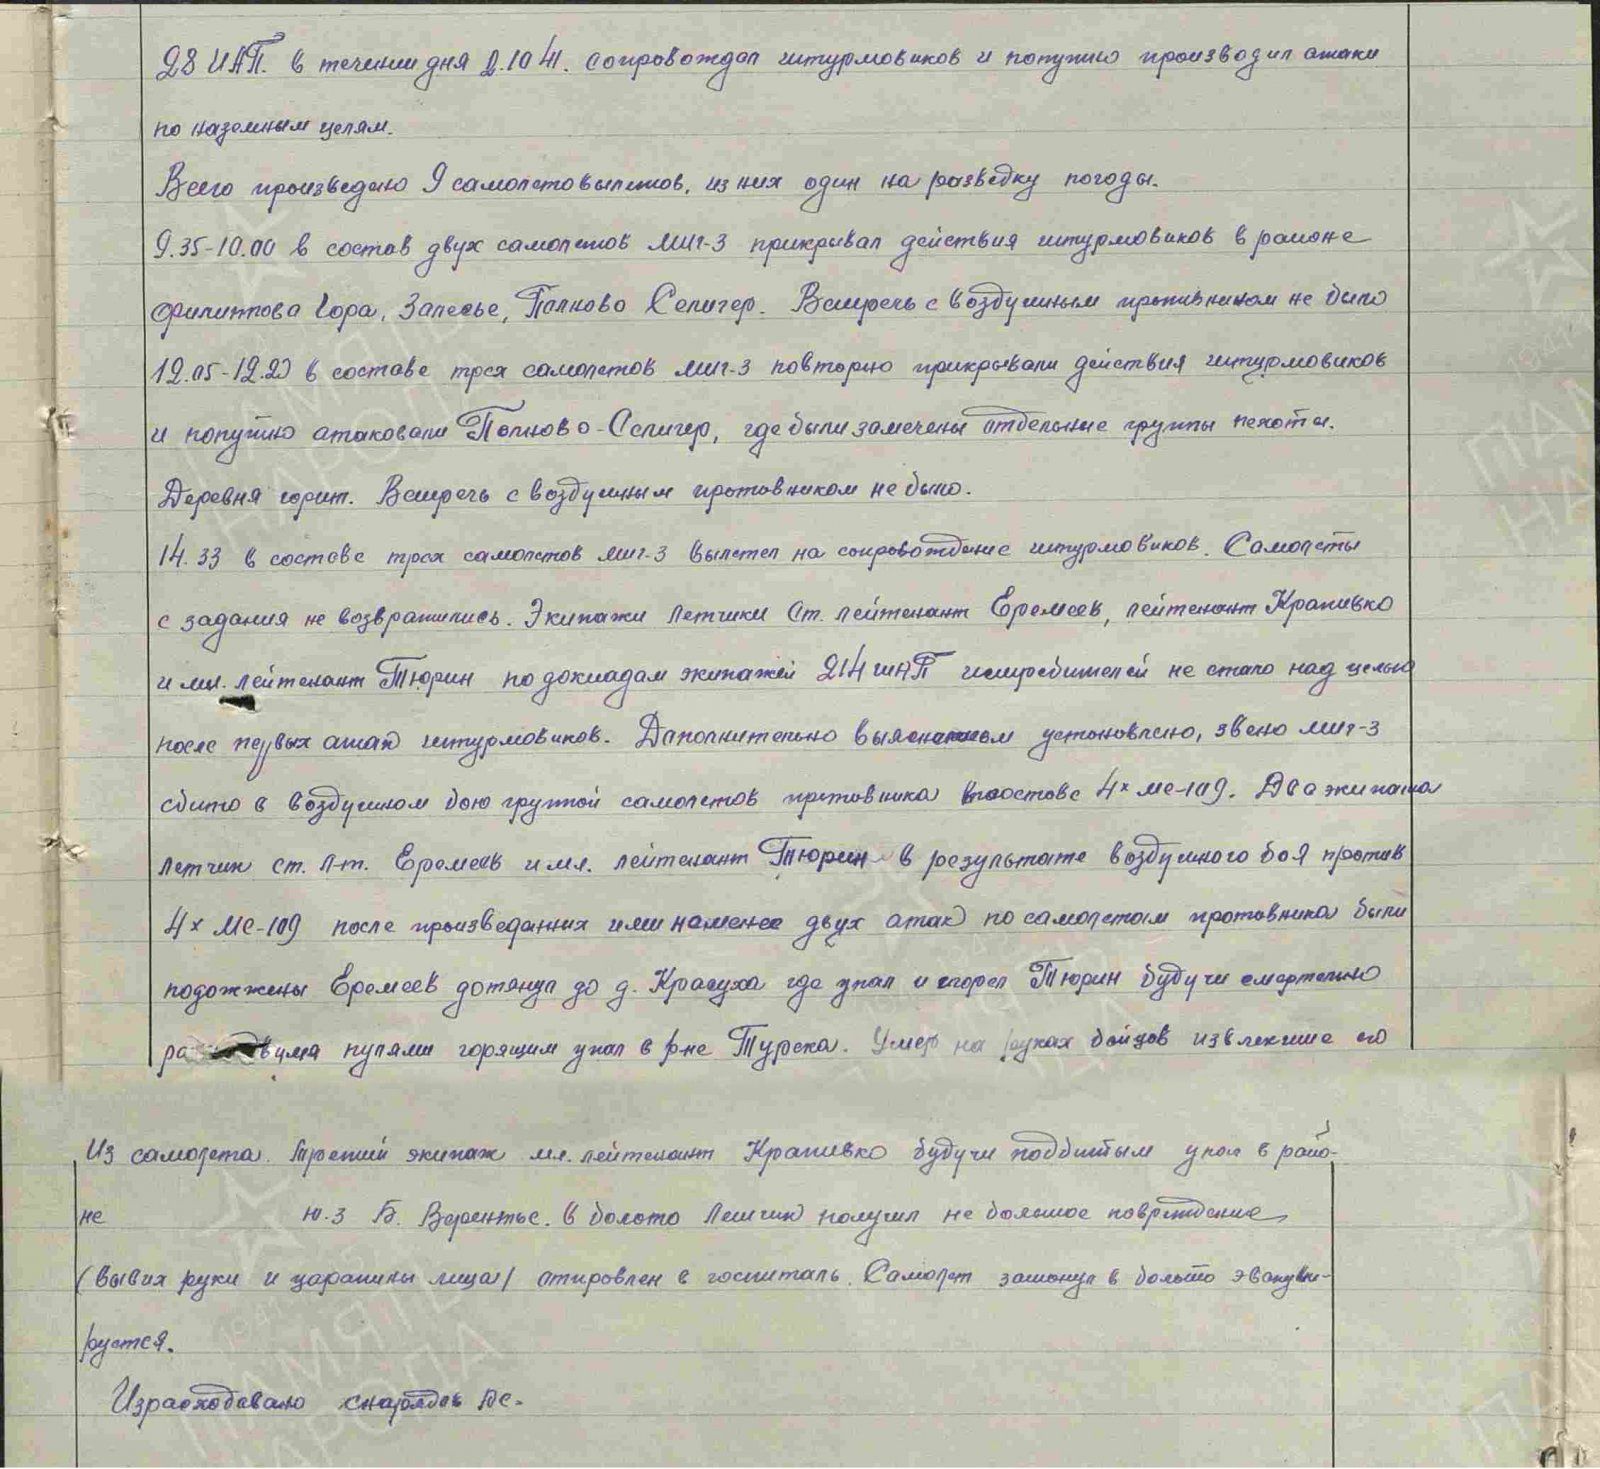 28 ИАП. в течении дня 2.10 41. сопровождал штурмовиков и попутно производил атаки
по наземным целям.
Всего произведено 9 самолетовылетов, из них один на разведку погоды.
9.35-10.00 в состав двух самолетов МИГ-3 прикрывал действия штурмовиков в районе
Филиппова Гора, Залесье, Полново Селигер. Встречь с воздушным противником не было
12.05-12.20 в составе трех самолетов МИГ-3 повторно прикрывали действия штурмовиков
и попутно атаковали Полново-Селигер, где были замечены отдельные группы пехоты.
Деревня горит. Встречь с воздушным противником не было.
14.33 в составе трех самолетов МИГ-3 вылетел на сопровождение штурмовиков. Самолеты
с задания не возвратились. Экипажи летчики Ст. лейтенант Еремеев, лейтенант Крапивко
и мл. лейтенант Тюрин по докладам экипажей 214 ШАП истребителей не стало над целью
после первых атак штурмовиков. Дополнительно установлено, звено МИГ-3
сбито в воздушном бою группой самолетов противника в составе 4х МЕ-109. Два экипажа
летчик ст. л-т. Еремеев и мл. лейтенант Тюрин в результате воздушного боя против
4х МЕ-109 после произведенных ими наменее двух атак по самолетам противника были
подожжены Еремеев дотянул до д. Красуха где упал и сгорел Тюрин будучи смертельно
пулями горящим упал в р-не Турска. Умер на руках бойцов извлекшие его
Из самолета. Третий экипаж мл. лейтенант Крапивко будучи подбитым упал в райо-
не ю.з Б. Веретье. в болото Летчик получил не большое повреждение
(вывих руки и царапины лица) отправлен в госпиталь. Самолет затонул в болото эвакуи-
руется.
Израсходовано снарядов РС.